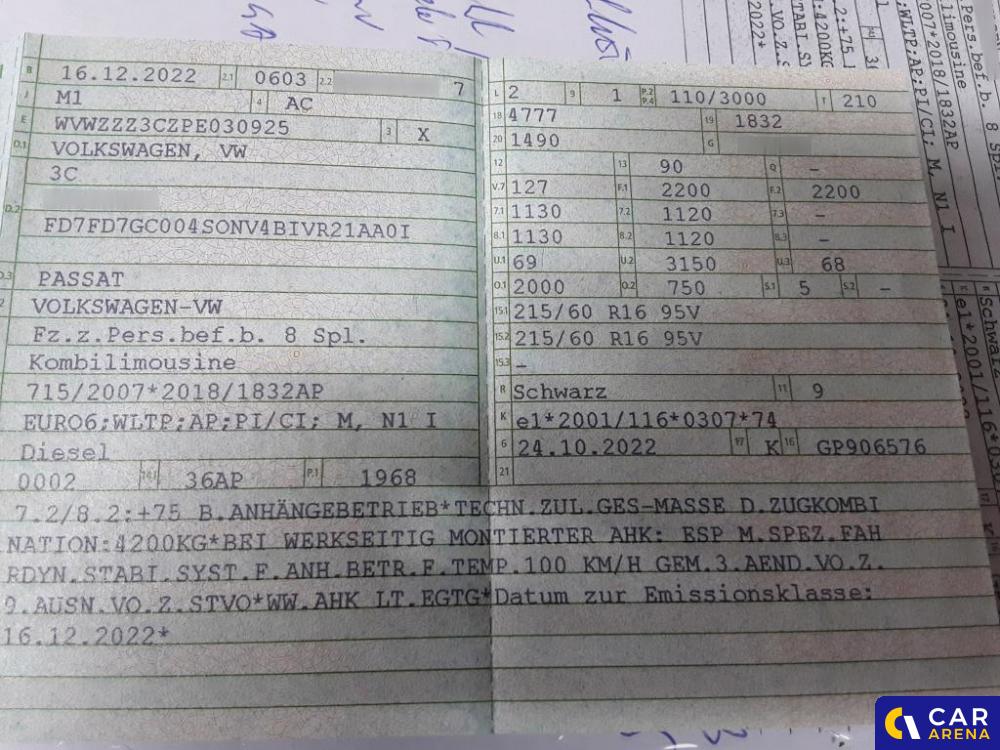 B 16.12.2022 2.1 0603 2.2 7
J M1 4 AC
E WVWZZZ3CZPE030925 3 X
D.1 VOLKSWAGEN, VW
3C
D.2
FD7FD7GC004SONV4BIVR21AA0I
D.3 PASSAT
2 VOLKSWAGEN-VW
Fz.z.Pers.bef.b. 8 Spl.
Kombilimousine
715/2007*2018/1832AP
EURO6;WLTP;AP;PI/CI; M, N1 I
Diesel
0002 14.1 36AP P.1 1968
L 2 9 1 P.2 P.4 110/3000 T 210
18 4777 19 1832
20 1490 G
12 13 90 Q –
V.7 127 F.1 2200 F.2 2200
7.1 1130 7.2 1120 7.3 –
8.1 1130 8.2 1120 8.3 –
U.1 69 U.2 3150 U.3 68
O.1 2000 O.2 750 S.1 5 S.2 –
15.1 215/60 R16 95V
15.2 215/60 R16 95V
15.3 –
R Schwarz 11 9
K e1*2001/116*0307*74
6 24.10.2022 17 K 16 GP906576
21
7.2/8.2:+75 B.ANHÄNGEBETRIEB*TECHN.ZUL.GES-MASSE D.ZUGKOMBI
NATION:4200KG*BEI WERKSEITIG MONTIERTER AHK: ESP M.SPEZ.FAH
RDYN.STABI.SYST.F.ANH.BETR.F.TEMP.100 KM/H GEM.3.AEND.VO.Z.
9.AUSN.VO.Z.STVO*WW.AHK LT.EGTG*Datum zur Emissionsklasse:
16.12.2022*
CAR
ARENA